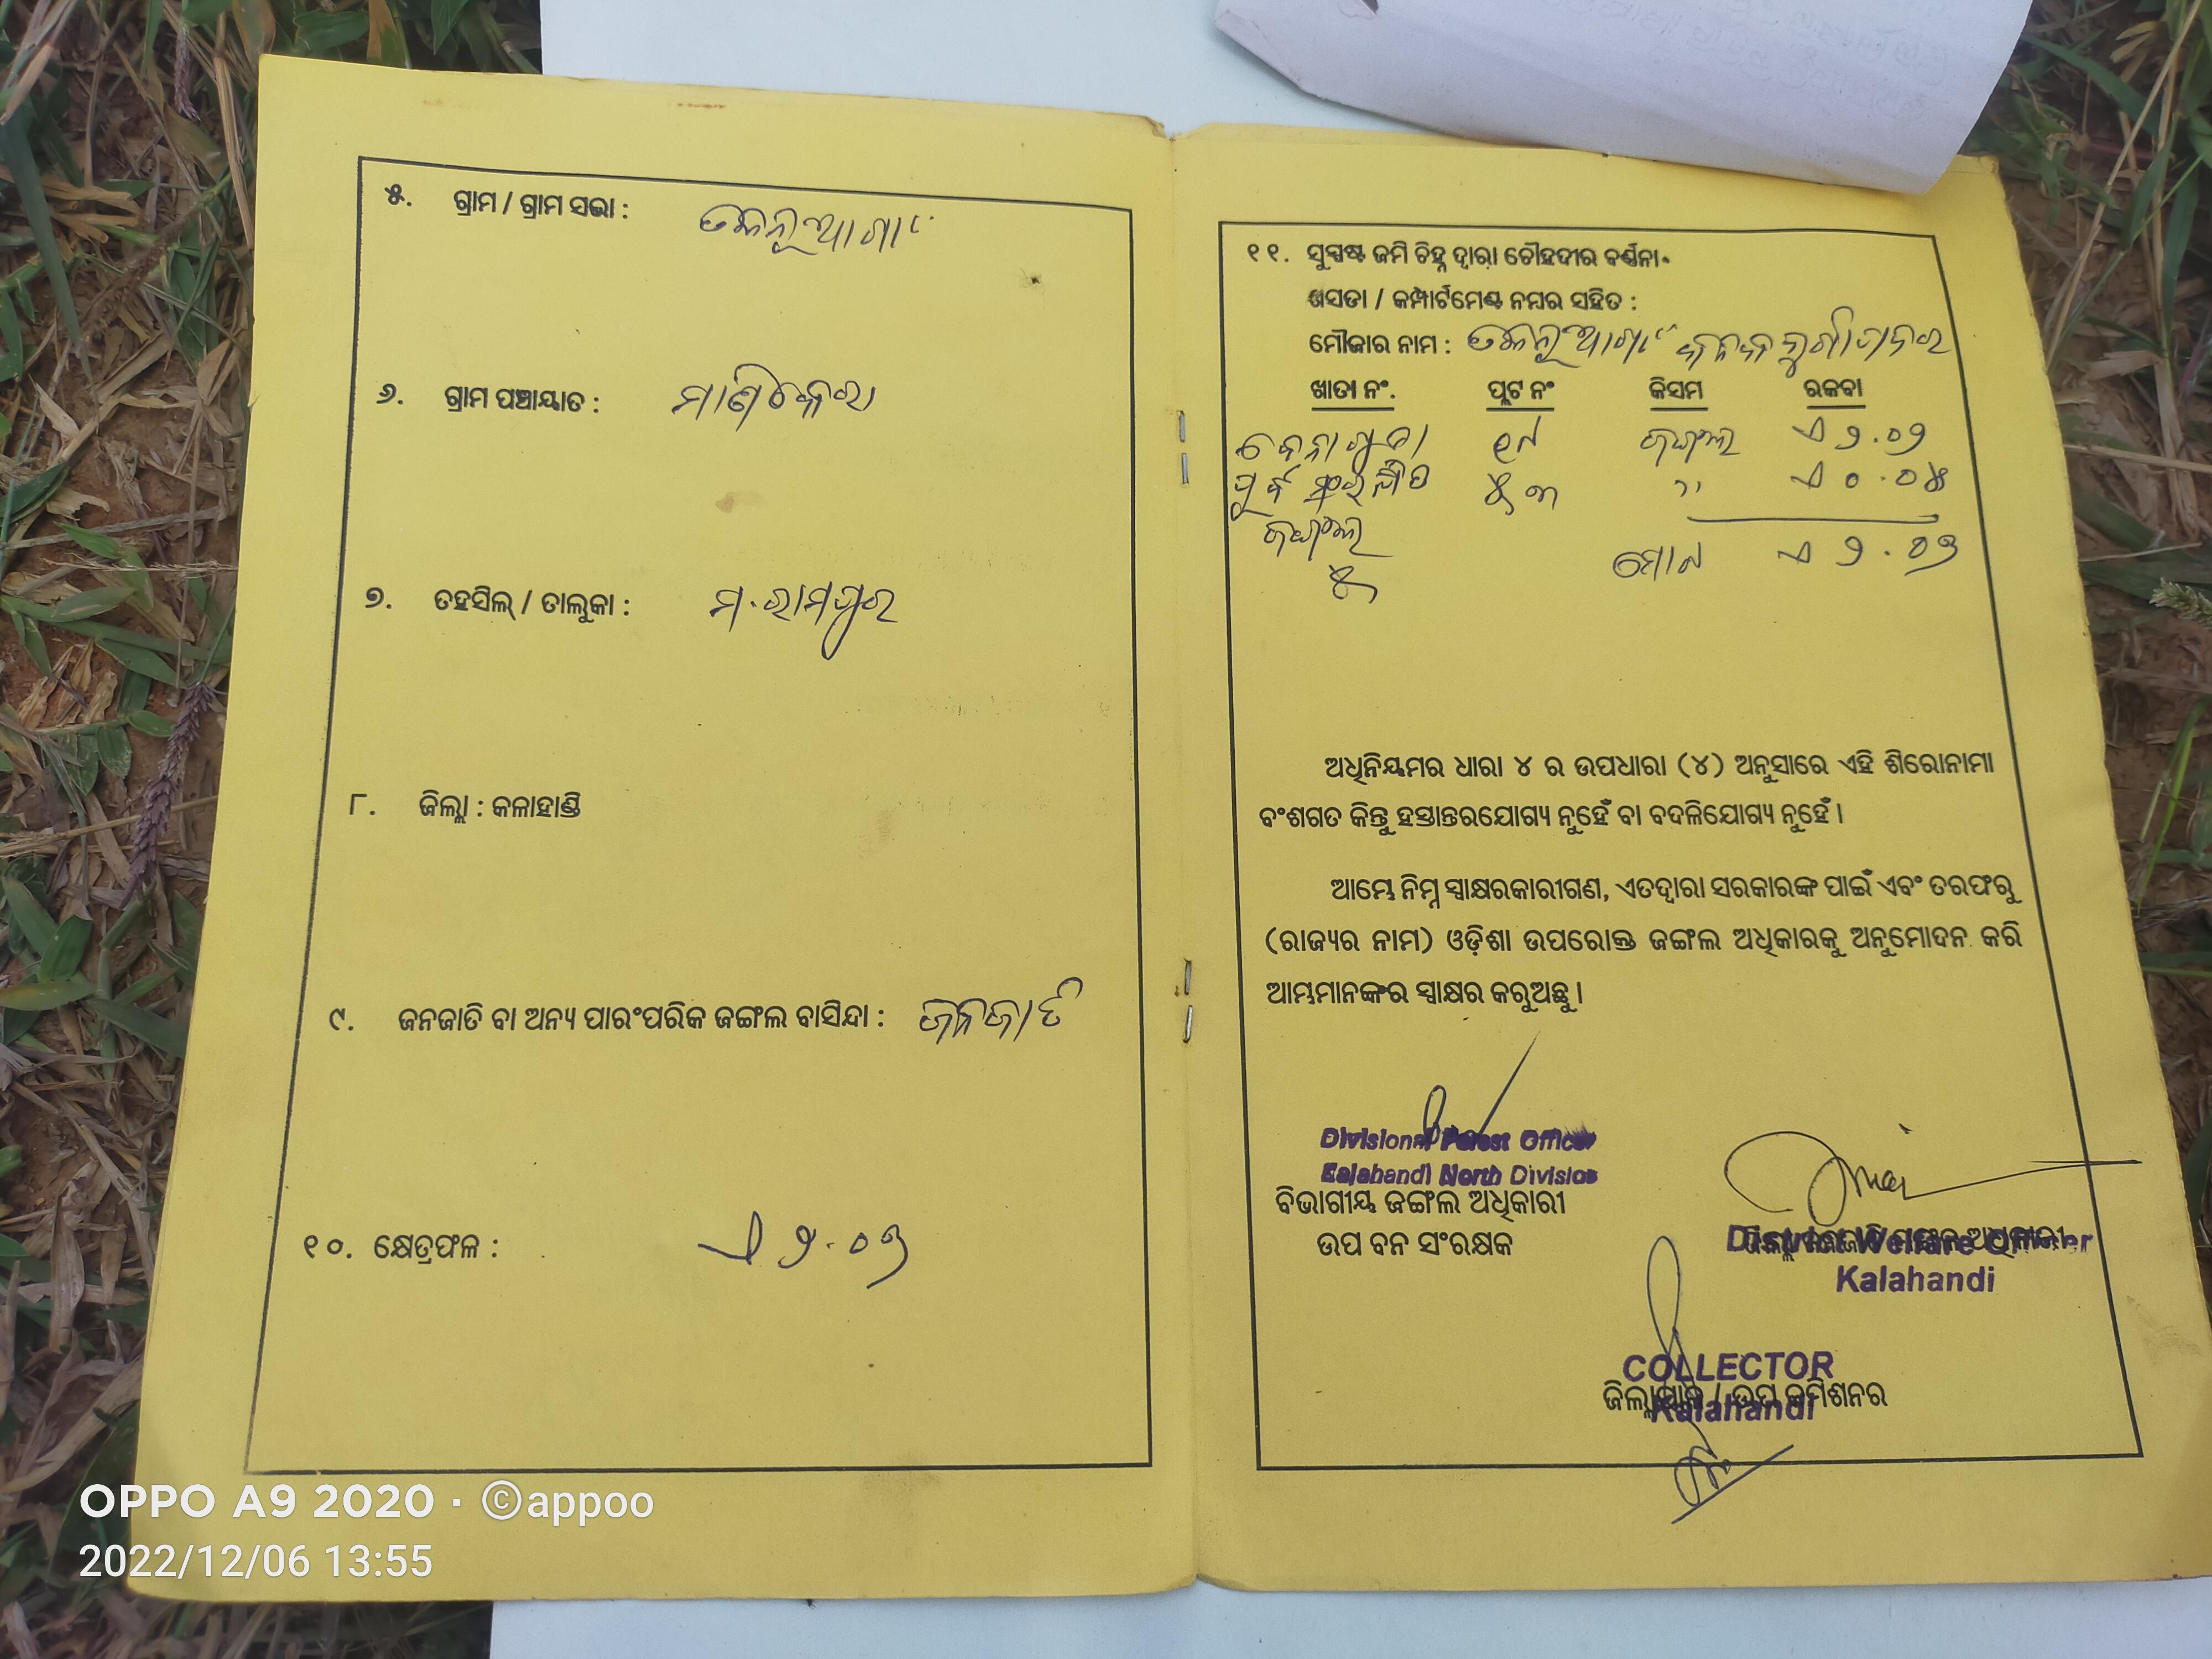 ୫. ଗ୍ରାମ / ଗ୍ରାମ ସଭା :
୬. ଗ୍ରାମ ପଞ୍ଚାୟାତ : ମାଣିକେରା
୭. ତହସିଲ୍ / ତାଲୁକା : ମ.ରାମପୁର
୮. ଜିଲ୍ଲା : କଳାହାଣ୍ଡି
୯. ଜନଜାତି ବା ଅନ୍ୟ ପାରଂପରିକ ଜଙ୍ଗଲ ବାସିନ୍ଦା : ଜନଜାତି
୧୦. କ୍ଷେତ୍ରଫଳ :
୧୧. ସୁସ୍ପଷ୍ଟ ଜମି ଚିହ୍ନ ଦ୍ୱାରା ଚୌହଦୀର ବର୍ଣ୍ଣନା
ଖସଡା / କମ୍ପାର୍ଟମେଣ୍ଟ ନମ୍ବର ସହିତ :
ମୌଜାର ନାମ :
ଖାତା ନଂ. ପ୍ଲଟ ନଂ କିସମ ରକବା
ଜଙ୍ଗଲ
ଜଙ୍ଗଲ
ମୋଟ
ଅଧିନିୟମର ଧାରା ୪ ର ଉପଧାରା (୪) ଅନୁସାରେ ଏହି ଶିରୋନାମା
ବଂଶଗତ କିନ୍ତୁ ହସ୍ତାନ୍ତରଯୋଗ୍ୟ ନୁହେଁ ବା ବଦଳିଯୋଗ୍ୟ ନୁହେଁ ।
ଆମ୍ଭେ ନିମ୍ନ ସ୍ୱାକ୍ଷରକାରୀଗଣ, ଏତଦ୍ୱାରା ସରକାରଙ୍କ ପାଇଁ ଏବଂ ତରଫରୁ
(ରାଜ୍ୟର ନାମ) ଓଡ଼ିଶା ଉପରୋକ୍ତ ଜଙ୍ଗଲ ଅଧିକାରକୁ ଅନୁମୋଦନ କରି
ଆମ୍ଭମାନଙ୍କର ସ୍ୱାକ୍ଷର କରୁଅଛୁ ।
Divisional Forest Officer
Kalahandi North Division
ବିଭାଗୀୟ ଜଙ୍ଗଲ ଅଧିକାରୀ
ଉପ ବନ ସଂରକ୍ଷକ
District Welfare Officer
Kalahandi
COLLECTOR
ଜିଲ୍ଲାପାଳ / ଉପ କମିଶନର
Kalahandi
OPPO A9 2020 · ©appoo
2022/12/06 13:55